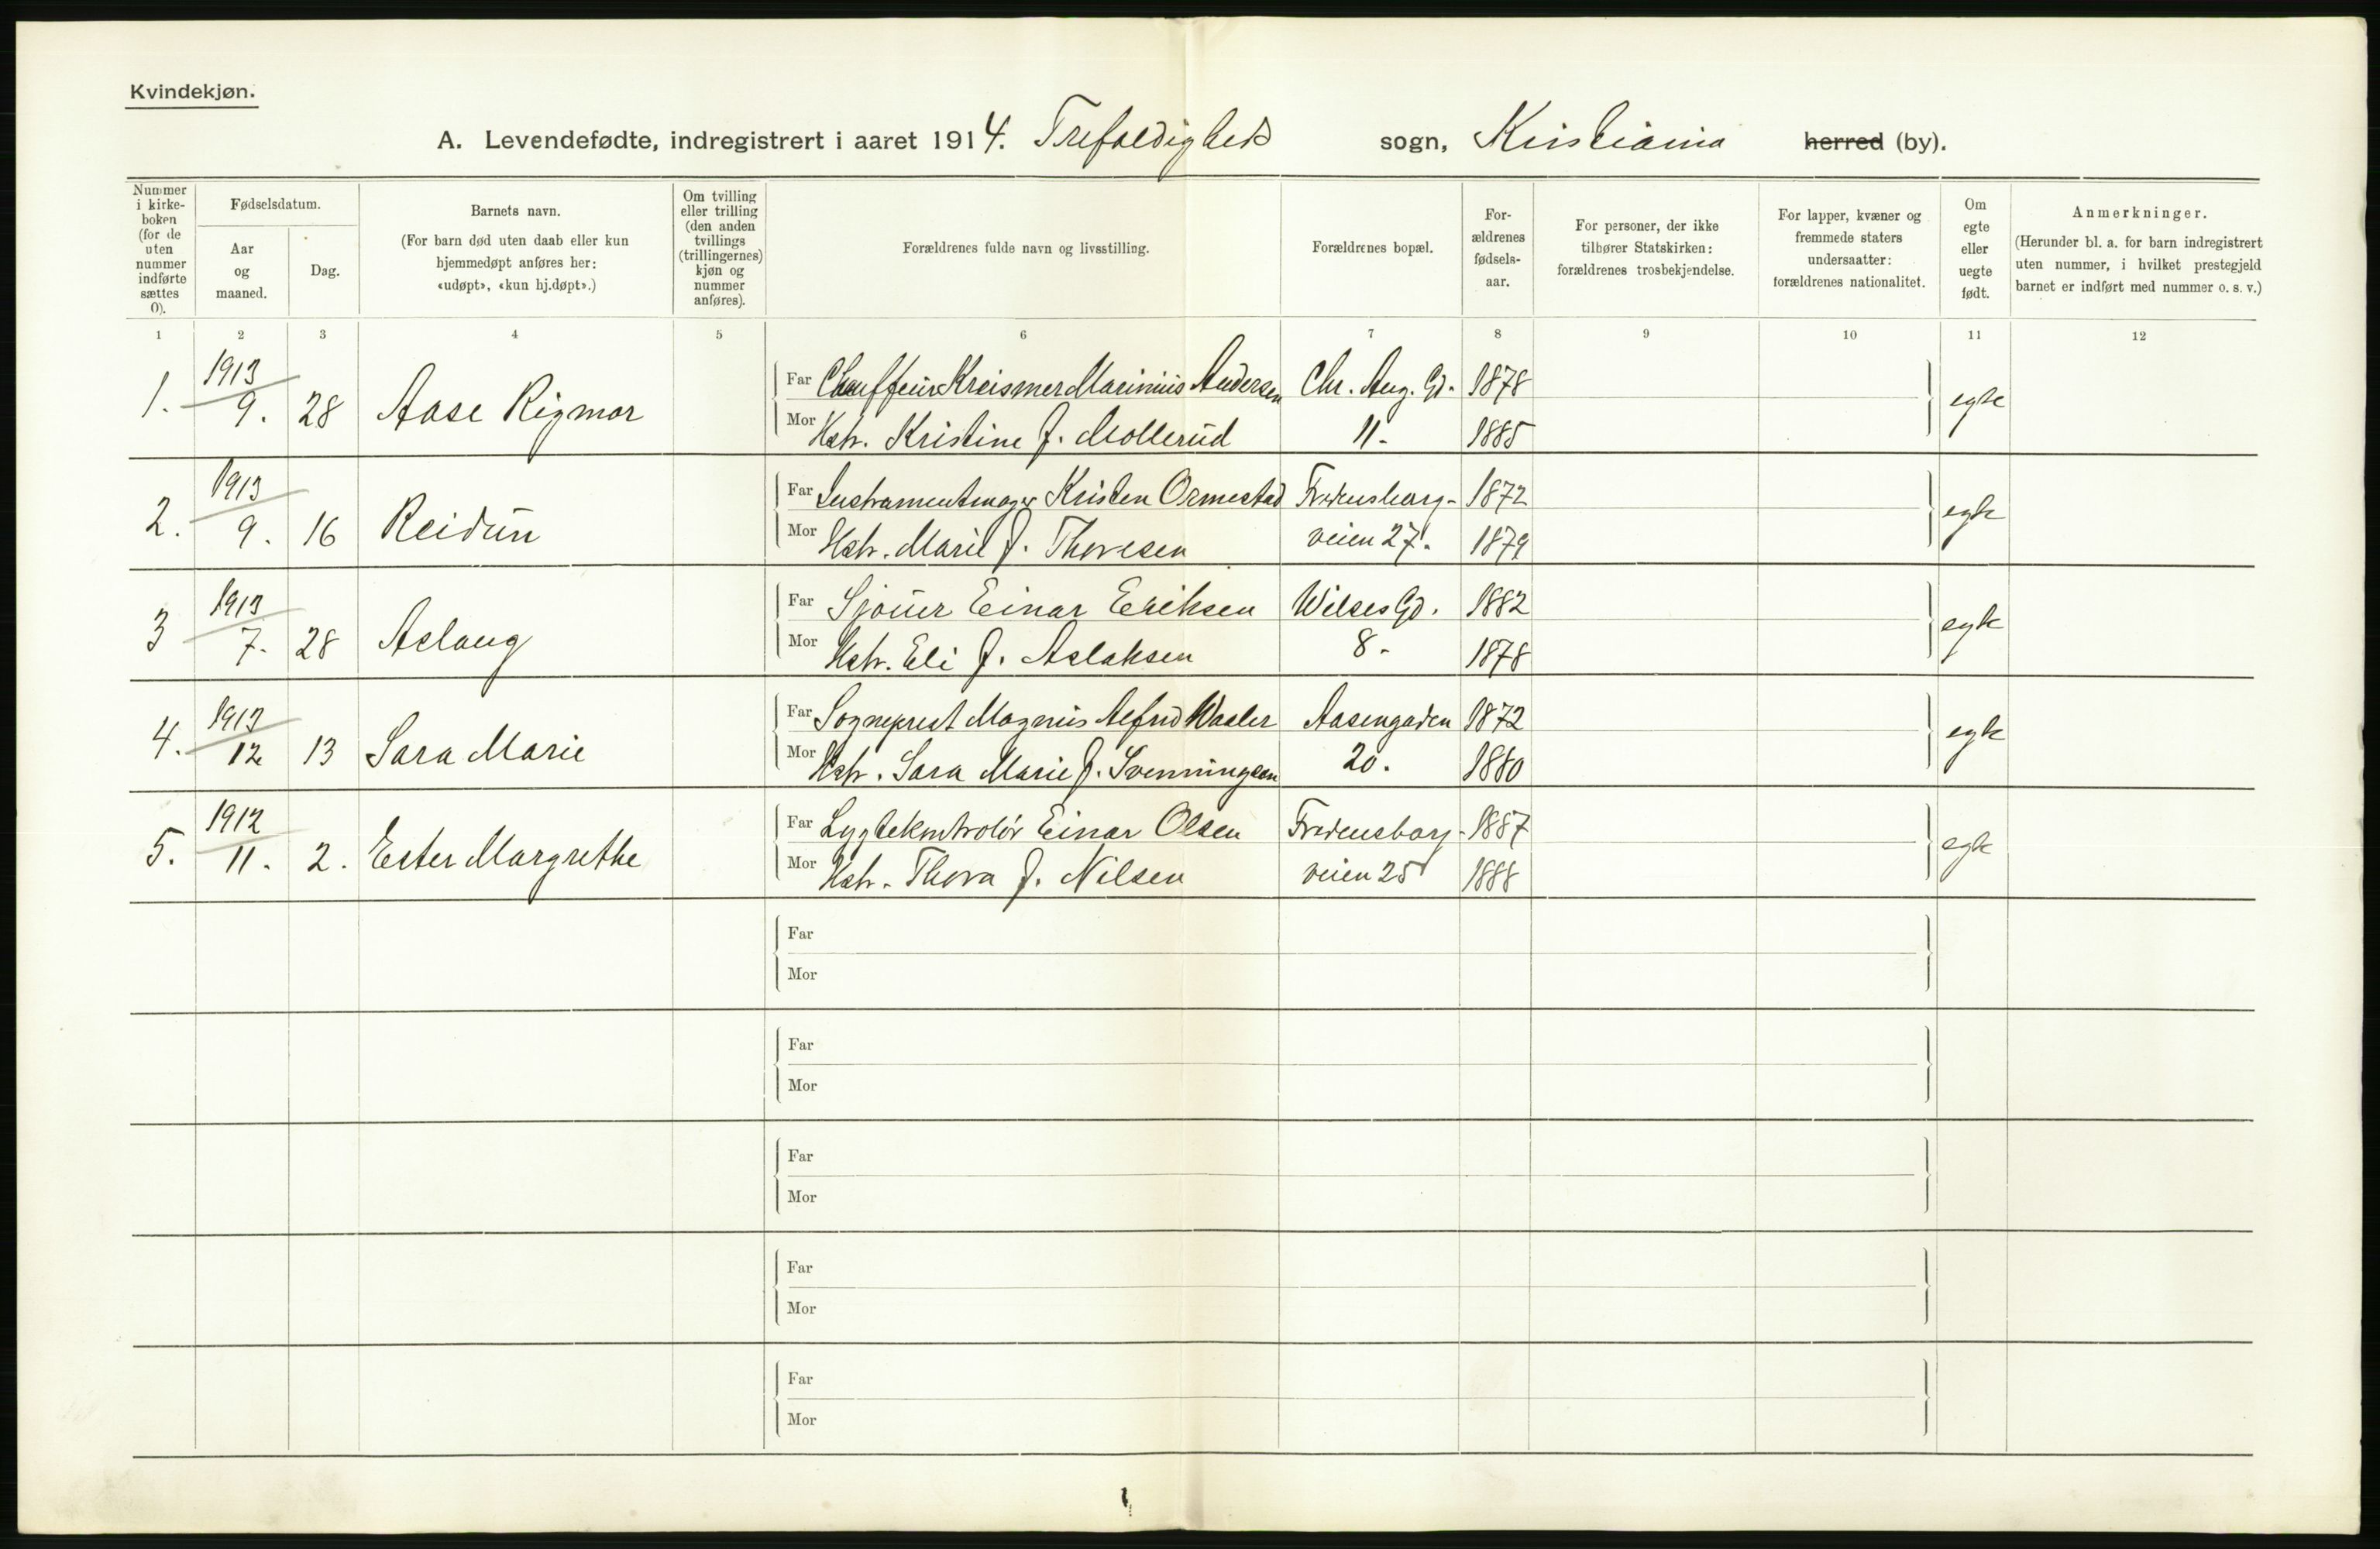 Kvindekjøn.
A. Levendefødte, indregistrert i aaret 1914. Trefoldigheds sogn, Kristiania herred (by).
Nummer i kirke-boken (for de uten nummer indførte sættes 0).
Fødselsdatum.
Aar og maaned.
Dag.
Barnets navn.
(For barn død uten daab eller kun hjemmedøpt anføres her: «udøpt», «kun hj.døpt».)
Om tvilling eller trilling (den anden tvillings (trillingernes) kjøn og nummer anføres).
Forældrenes fulde navn og livsstilling.
Forældrenes bopæl.
For-ældrenes fødsels-aar.
For personer, der ikke tilhører Statskirken: forældrenes trosbekjendelse.
For lapper, kvæner og fremmede staters undersaatter: forældrenes nationalitet.
Om egte eller uegte født.
Anmerkninger.
(Herunder bl. a. for barn indregistrert uten nummer, i hvilket prestegjeld barnet er indført med nummer o. s. v.)
1 2 3 4 5 6 7 8 9 10 11 12
1. 1913 9. 28 Aase Rigmor Far Chauffeur Kreismer Marinius Andersen Chr. Aug. Gd. 1878 egte
Mor Hstr. Kristine f. Mollerud 11. 1885
2. 1913 9. 16 Reidun Far Instrumentmager Kristen Ormestad Fredensborg- 1872 egte
Mor Hstr. Marie f. Thoresen veien 27. 1879
3 1913 7. 28 Aslaug Far Sjouer Einar Eriksen Wilses Gd. 1882 egte
Mor Hstr. Eli f. Aslaksen 8. 1878
4. 1913 12 13 Sara Marie Far Sogneprest Magnus Alfred Waaler Aasengaden 1872 egte
Mor Hstr. Sara Marie f. Svenningsen 20. 1880
5. 1912 11. 2. Ester Margrethe Far Lygtekontrolør Einar Olsen Fredensborg- 1887 egte
Mor Hstr. Thora f. Nilsen veien 25 1888
Far
Mor
Far
Mor
Far
Mor
Far
Mor
Far
Mor